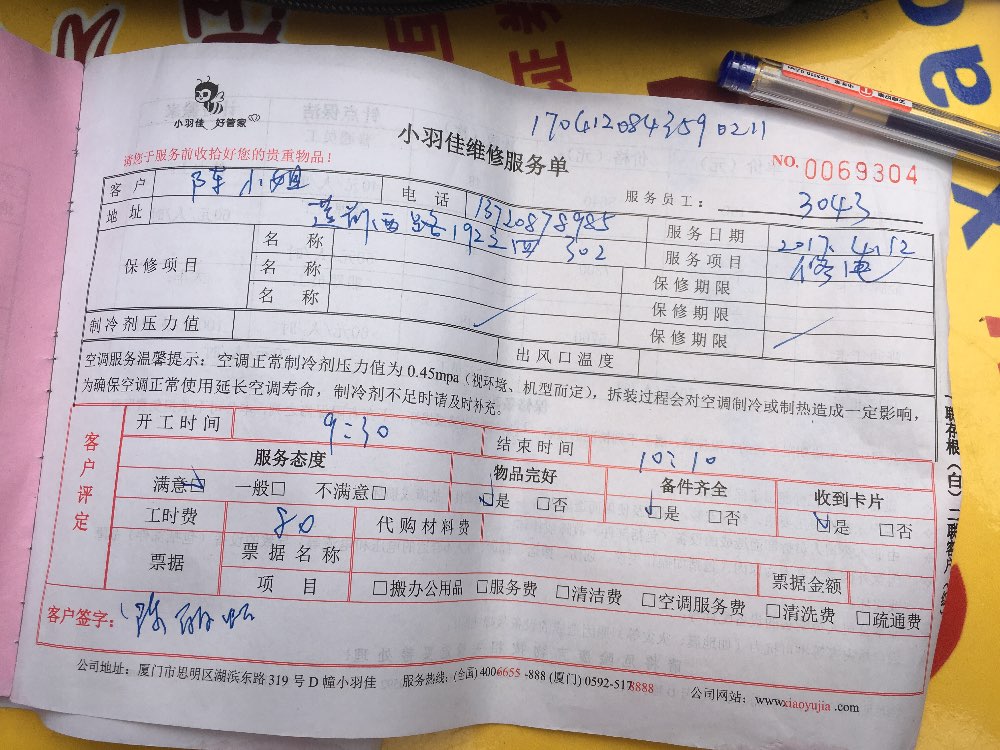 小羽佳 好管家
1704120843590211
小羽佳维修服务单
NO. 0069304
请您于服务前收拾好您的贵重物品！
服务员工： 3043
客户 陈小姐 电话 13720878985 服务日期 2017.4.12
地址 莲前西路1922 302 服务项目 修电
保修项目 名称 保修期限
名称 保修期限
名称 保修期限
制冷剂压力值 出风口温度
空调服务温馨提示：空调正常制冷剂压力值为 0.45mpa（视环境、机型而定），拆装过程会对空调制冷或制热造成一定影响，
为确保空调正常使用延长空调寿命，制冷剂不足时请及时补充。
客户评定
开工时间 9:30 结束时间 10:10
服务态度 物品完好 备件齐全 收到卡片
满意☑ 一般□ 不满意□ ☑是 □否 ☑是 □否 ☑是 □否
工时费 80 代购材料费
票据 票据名称 票据金额
项目 □搬办公用品 □服务费 □清洁费 □空调服务费 □清洗费 □疏通费
客户签字： 陈
公司地址：厦门市思明区湖滨东路 319 号 D 幢小羽佳 服务热线：(全国) 4006655-888 (厦门) 0592-5178888 公司网站：www.xiaoyujia.com
一联存根（白）二联客户